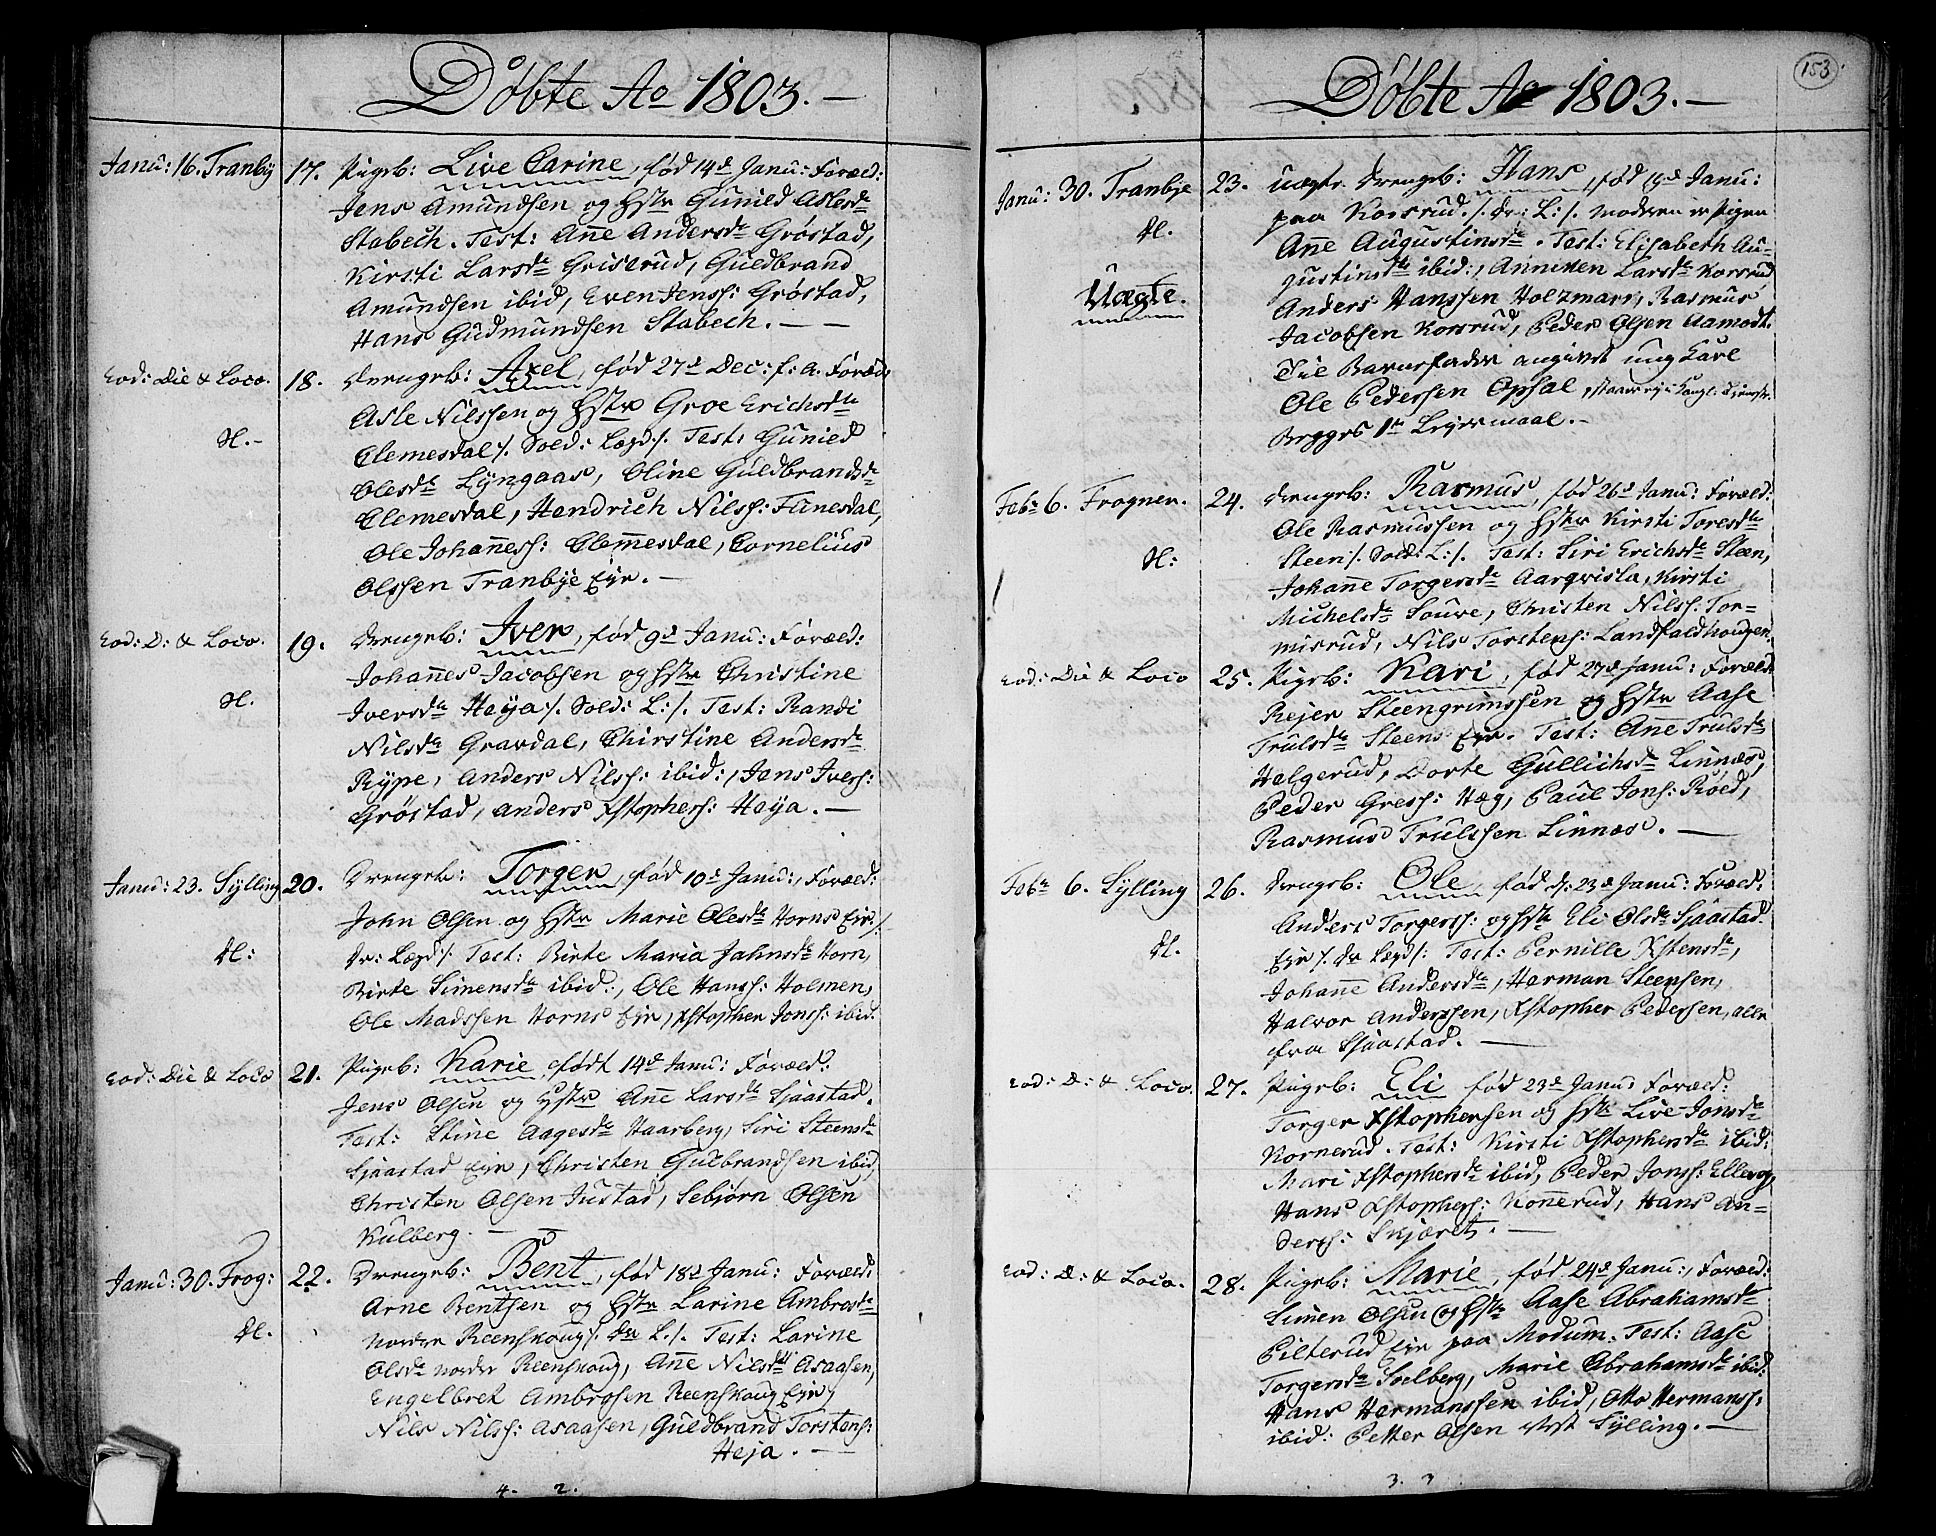 Döbte Ao 1803. —
Janu: 16. Tranby 17. Pigeb: Live Carine, fød 14de Janu: Foræld:
Jens Amundsen og Hstr Gunild Aslesdr
Stabech. Test: Anne Andersdr Gröstad,
Kirsti Larsdr Griserud, Guldbrand
Amundsen ibid, Even Jenss: Gröstad,
Hans Gudmundsen Stabech. — —
Eod: Die & Loco. 18. Drengeb: Axel, fød 27d Dec: f: a. Foræld:
Asle Nilssen og Hstr Groe Erichsdr
H. - Clemesdal /. Sold: Lægd /. Test: Gunild
Olesdr Lyngaas, Oline Guldbrandsdr
Clemesdal, Hendrich Nilss: Funesdal,
Ole Johannes: Clemmesdal, Cornelius
Olssen Tranbye Eje. —
Eod: D: & Loco. 19. Drengeb: Iver, fød 9d Janu: Foræld:
Johannes Jacobsen og Hstr Christine
H. Iversdr Heja /. Sold: L: /. Test: Randi
Nilsdr Gravdal, Chirstine Andersdr
Rype, Anders Nilss: ibid:, Jens Ivers:
Gröstad, Anders Xstophers: Heja. —
Janu: 23. Sylling 20. Drengeb: Torger, fød 10d Janu:, Foræld:
John Olsen og Hstr Marie Olesdr Horns Eje. /.
H: Dr: Lægd /. Test: Birte Maria Jahnsdr Horn,
Birte Simensdr ibid:, Ole Hanss: Holmen,
Ole Madssen Horns Eje, Xstopher Jonss: ibid.
Eod: Die & Loco 21. Pigeb: Karie, født 14de Janu: Foræld:
Jens Olsen og Hstr Anne Larsdr Sjaastad.
Test: Stine Aagesdr Haarberg, Siri Steensdr
Sjaastad Eje, Christen Gulbrandsen ibid,
Christen Olsen Justad, Sebjørn Olsen
Kulberg. —
Janu: 30. Frog: 22. Drengeb: Bent, fød 18d Janu: Foræld:
Arne Bentsen og Hstr Larine Ambrosdr
H. Nordre Reenskoug /. Dr L: /. Test: Larine
Olsdr Nordre Reenskoug, Anne Nilsdr Asaasen,
Engelbret Ambrosen Reenskoug Eje,
Nils Nilss: Asaasen, Guldbrand Torstens:
Heja. —
4. 2.
153
Döbte Ao 1803. —
Janu: 30. Tranbye 23. Uægte Drengeb: Hans, fød Janu:
H. paa Korsrud. /. Dr: L: /. Moderen er Pigen
Anne Augustinsdr. Test: Elisabeth Au-
gustinsdr ibid:, Anniken Larsdr Korsrud
Uægte. Anders Hanssen Holzmann, Rasmus
Jacobsen Korsrud, Peder Olsen Aamodt.
Til Barnefader angivet ung Karl
Ole Pedessen Opsal,
Begges 1te Lejermaal. —
Febr 6. Frogner. 24. Drengeb: Rasmus, fød 26d Janu: Foræld:
Ole Rasmussen og Hstr Kirsti Toresdr
H: Steen /. Sold: L: /. Test: Siri Erichsdr Steen,
Johanne Torgersdr Aarqvisla, Kirsti
Michelsdr Souve, Christen Nilss: Tor-
misrud, Nils Torstens: Landfaldhougen.
Eod: Die & Loco 25. Pigeb: Kari, fød 27de Janu: Foræld:
Rejer Steengrimssen og Hstr Aase
Trulsdr Steens Eje. Test: Anne Trulsdr
Helgerud, Dorte Gullichsdr Linnæs,
Peder Gress: Hæg, Paul Jons: Röed,
Rasmus Trulssen Linnæs. —
Febr 6. Sylling 26. Drengeb: Ole, fød d: 23de Janu: Foræld:
Anders Torgerss: og Hstr Eli Olsdr Sjaastad
H. Eje /. Dr Lægd /: Test: Pernille Xstensdr,
Johanne Andersdr, Herman Steensen,
Halvor Anderssen, Xstopher Pedersen, alle
fra Sjaastad. —
Eod: D: & Loco. 27. Pigeb: Eli fød 23de Janu: Foræld:
Torger Xstophersen og Hstr Live Jonsdr
Kornerud. Test: Kirsti Xstophersdr ibid:
Mari Xstophersdr ibid, Peder Jonss: Ellevog,
Hans Xstophers: Konnerud, Hans An-
ders: Skjæret. —
Eod: D: & Loco. 28. Pigeb: Marie, fød 24de Janu:, Foræld:
Simen Olsen og Hstr Aase Abrahamsdr
Pilterud Eje paa Modum. Test: Aase
Torgersdr Solberg, Marie Abrahamsdr ibid:
Hans Hermanssen ibid, Otto Hermanss:
ibid: Petter Olsen Vest Sylling. —
3. 3